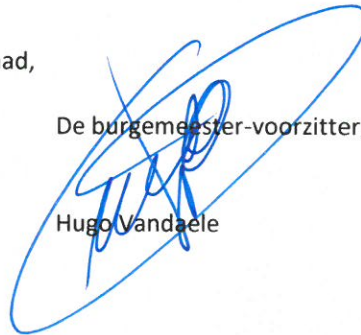 ad,
De burgemeester-voorzitter
Hugo Vandaele